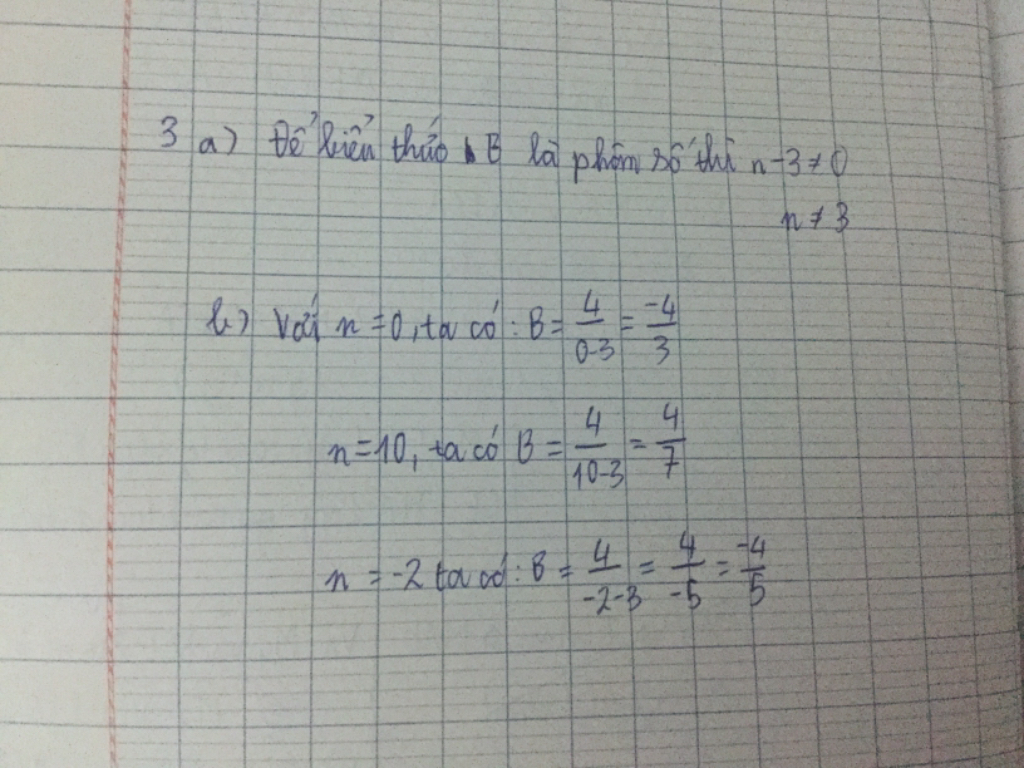 3 a) Để biểu thức B là phân số thì n-3≠0
n≠3
b) Với n=0, ta có: B = 4/0-3 = -4/3
n=10, ta có B = 4/10-3 = 4/7
n = -2 ta có: B = 4/-2-3 = 4/-5 = -4/5